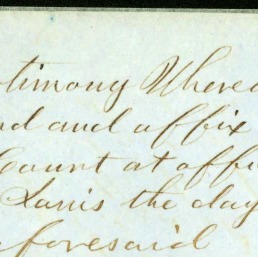 timony Where
nd and affix
Court at offi
Louis the day
aforesaid